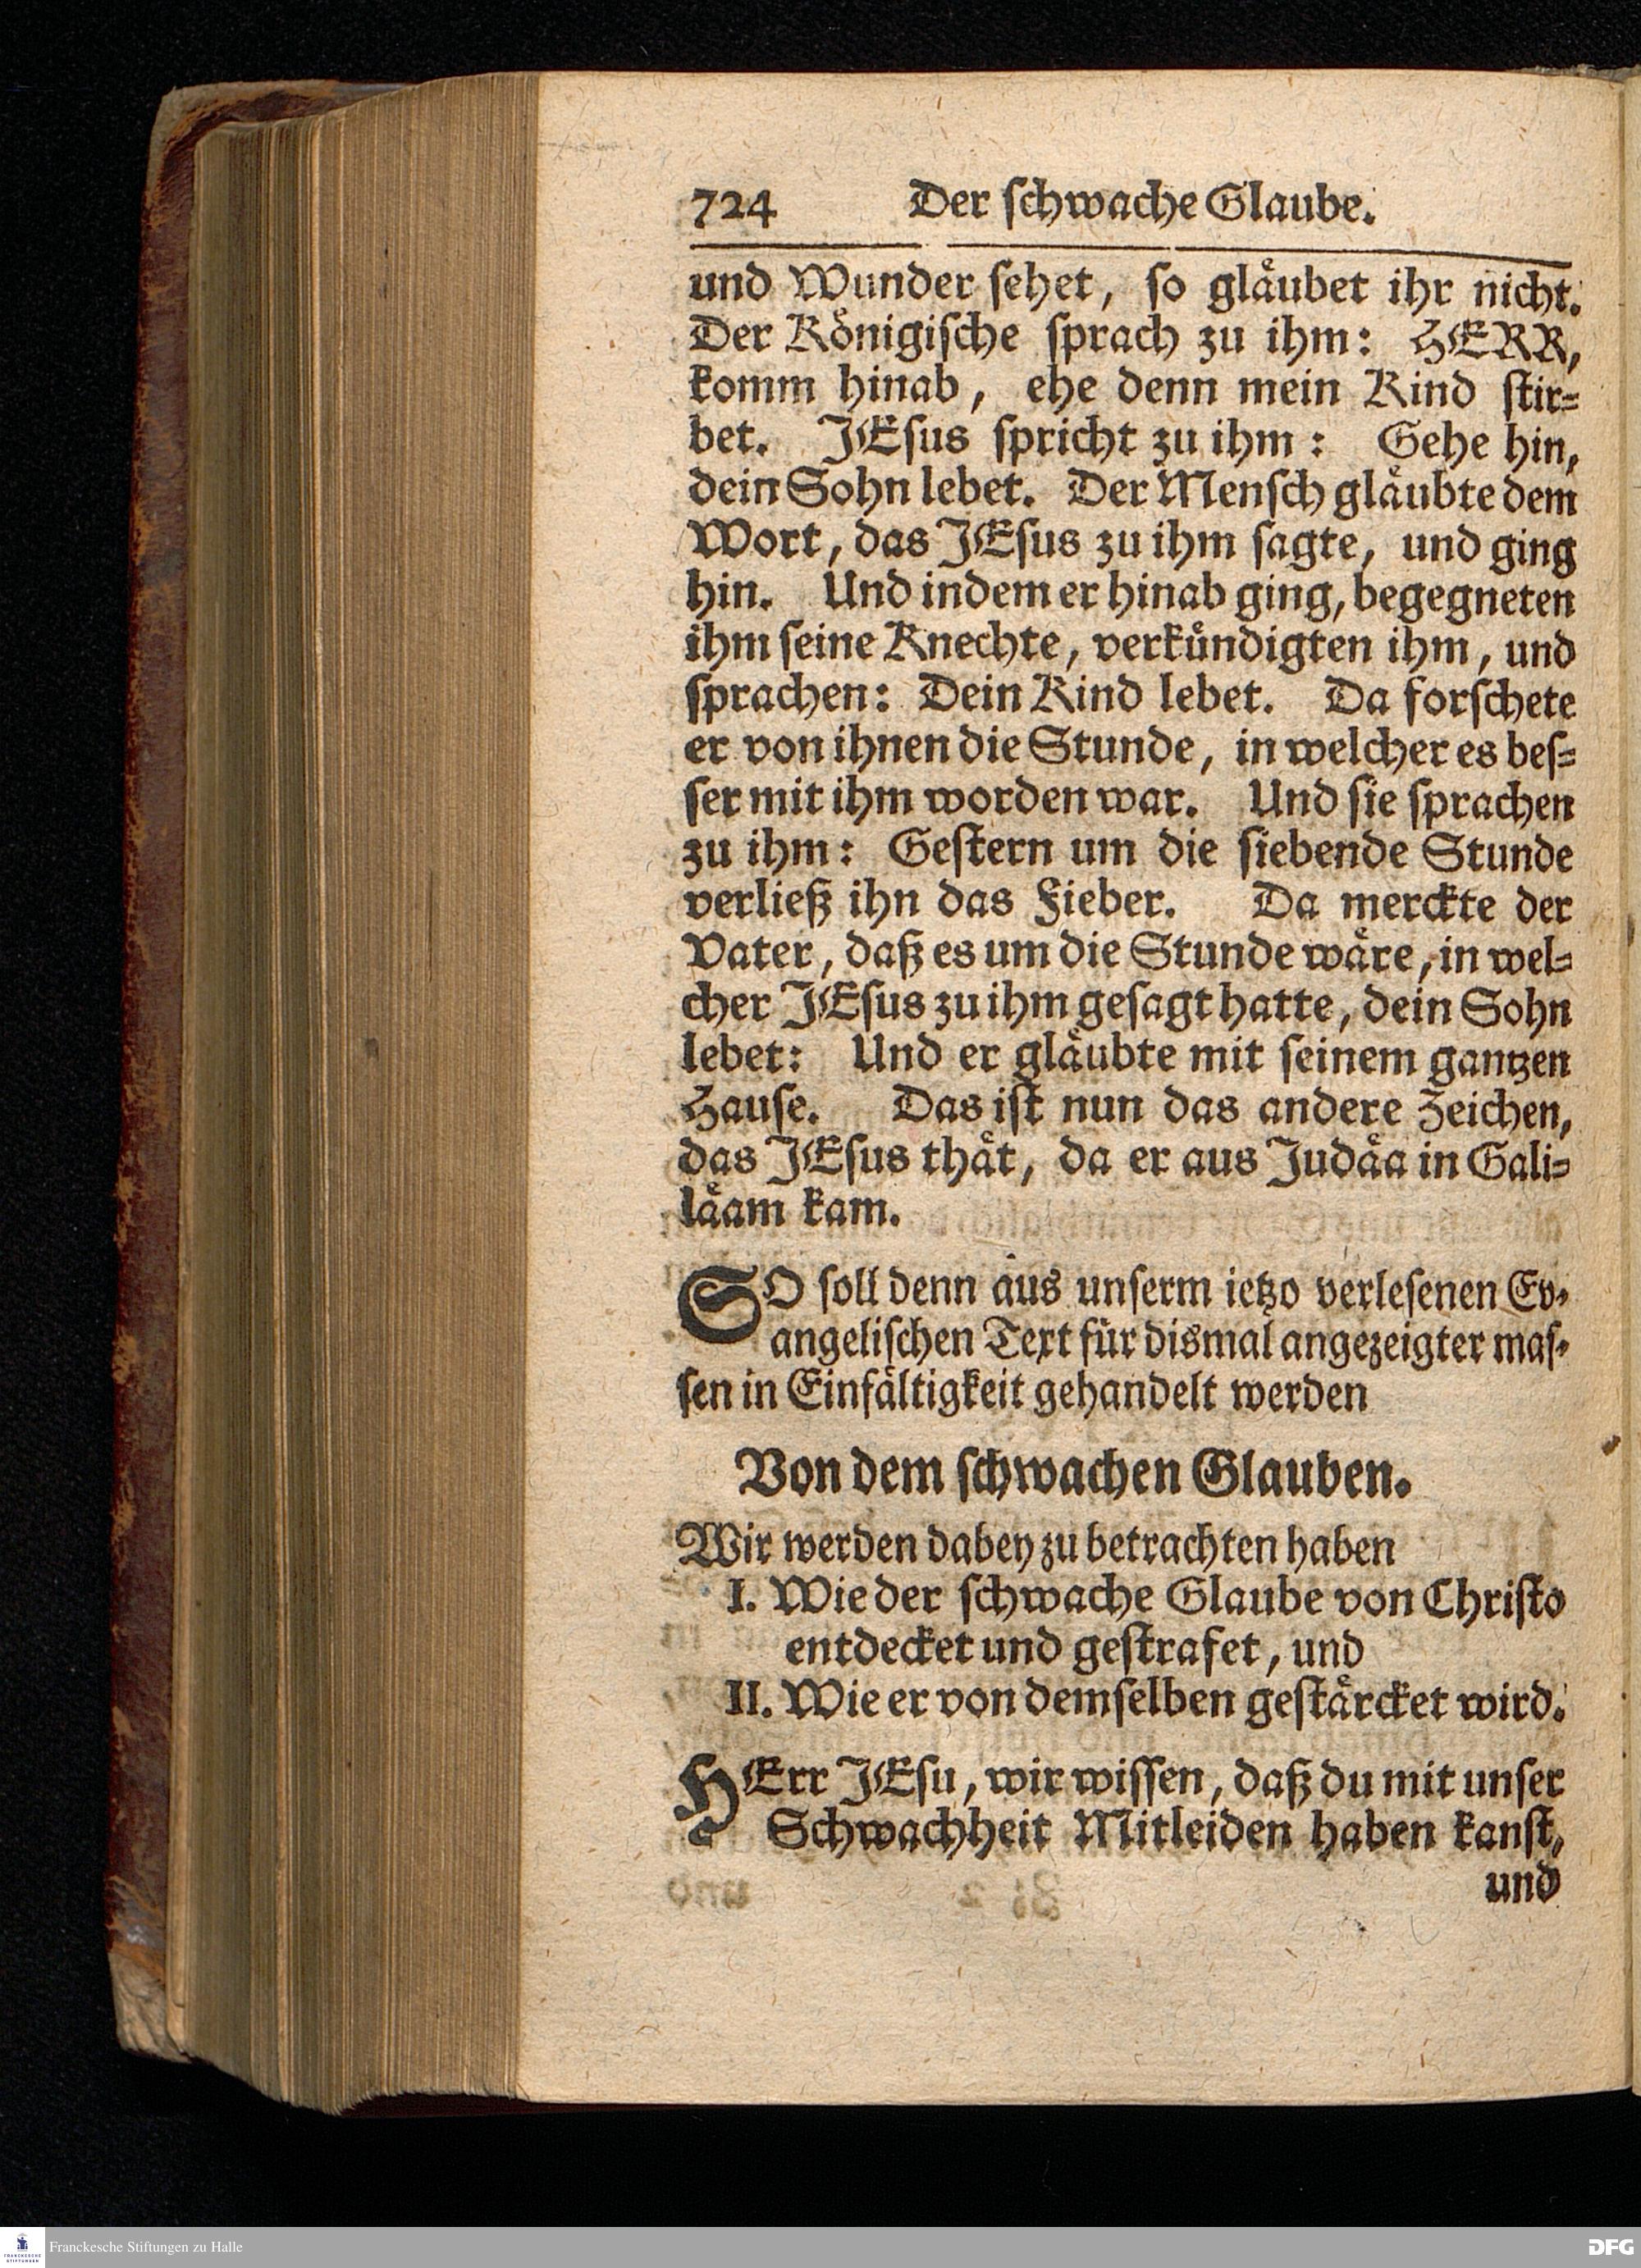 724 Der ſchwache Glaube.
und Wunder ſehet, ſo glaͤubet ihr nicht.
Der Koͤnigiſche ſprach zu ihm: HERR,
komm hinab, ehe denn mein Kind ſtir⸗
bet. JEſus ſpricht zu ihm: Gehe hin,
dein Sohn lebet. Der Menſch glaͤubte dem
Wort, das JEſus zu ihm ſagte, und ging
hin. Und indem er hinab ging, begegneten
ihm ſeine Knechte, verkuͤndigten ihm, und
ſprachen: Dein Kind lebet. Da forſchete
er von ihnen die Stunde, in welcher es beſ⸗
ſer mit ihm worden war. Und ſie ſprachen
zu ihm: Geſtern um die ſiebende Stunde
verließ ihn das Fieber. Da merckte der
Vater, daß es um die Stunde waͤre, in wel⸗
cher JEſus zu ihm geſagt hatte, dein Sohn
lebet: Und er glaͤubte mit ſeinem gantzen
Hauſe. Das iſt nun das andere Zeichen,
das JEſus thaͤt, da er aus Judaͤa in Gali⸗
laͤam kam.
SO ſoll denn aus unſerm ietzo verleſenen Ev⸗
angeliſchen Text fuͤr dismal angezeigter maſ⸗
ſen in Einfaͤltigkeit gehandelt werden
Von dem ſchwachen Glauben.
Wir werden dabey zu betrachten haben
I. Wie der ſchwache Glaube von Chriſto
entdecket und geſtrafet, und
II. Wie er von demſelben geſtaͤrcket wird.
HErr JEſu, wir wiſſen, daß du mit unſer
Schwachheit Mitleiden haben kanſt,
und
FRANCKESCHE STIFTUNGEN
Franckesche Stiftungen zu Halle
DFG